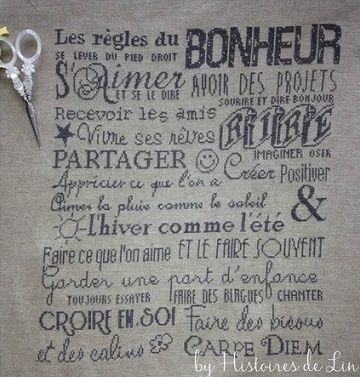 Les règles du BONHEUR
SE LEVER DU PIED DROIT
S'Aimer ET SE LE DIRE
AVOIR DES PROJETS
SOURIRE ET DIRE BONJOUR
Recevoir les amis
Vivre ses rêves
IMAGINER OSER
PARTAGER
Créer Positiver
Apprécier ce que l'on a
Aimer la pluie comme le soleil
&
L'hiver comme l'été
Faire ce que l'on aime ET LE FAIRE SOUVENT
Garder une part d'enfance
TOUJOURS ESSAYER FAIRE DES BLAGUES CHANTER
CROIRE EN SOI Faire des bisous
et des calins CARPE DIEM
by Histoires de Lin